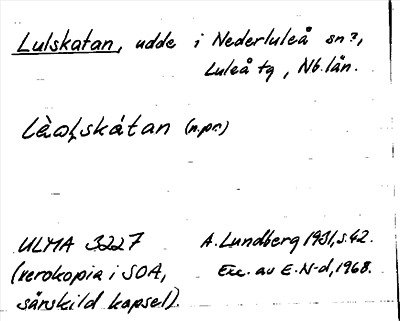 Lulskatan, udde i Nederluleå sn?,
Luleå tg, Nb. län.
(n.pr.)
ULMA 3227 A. Lundberg 1931, s. 42.
(xerokopia i SOA, Exc. av E. N-d, 1968.
särskild kapsel).